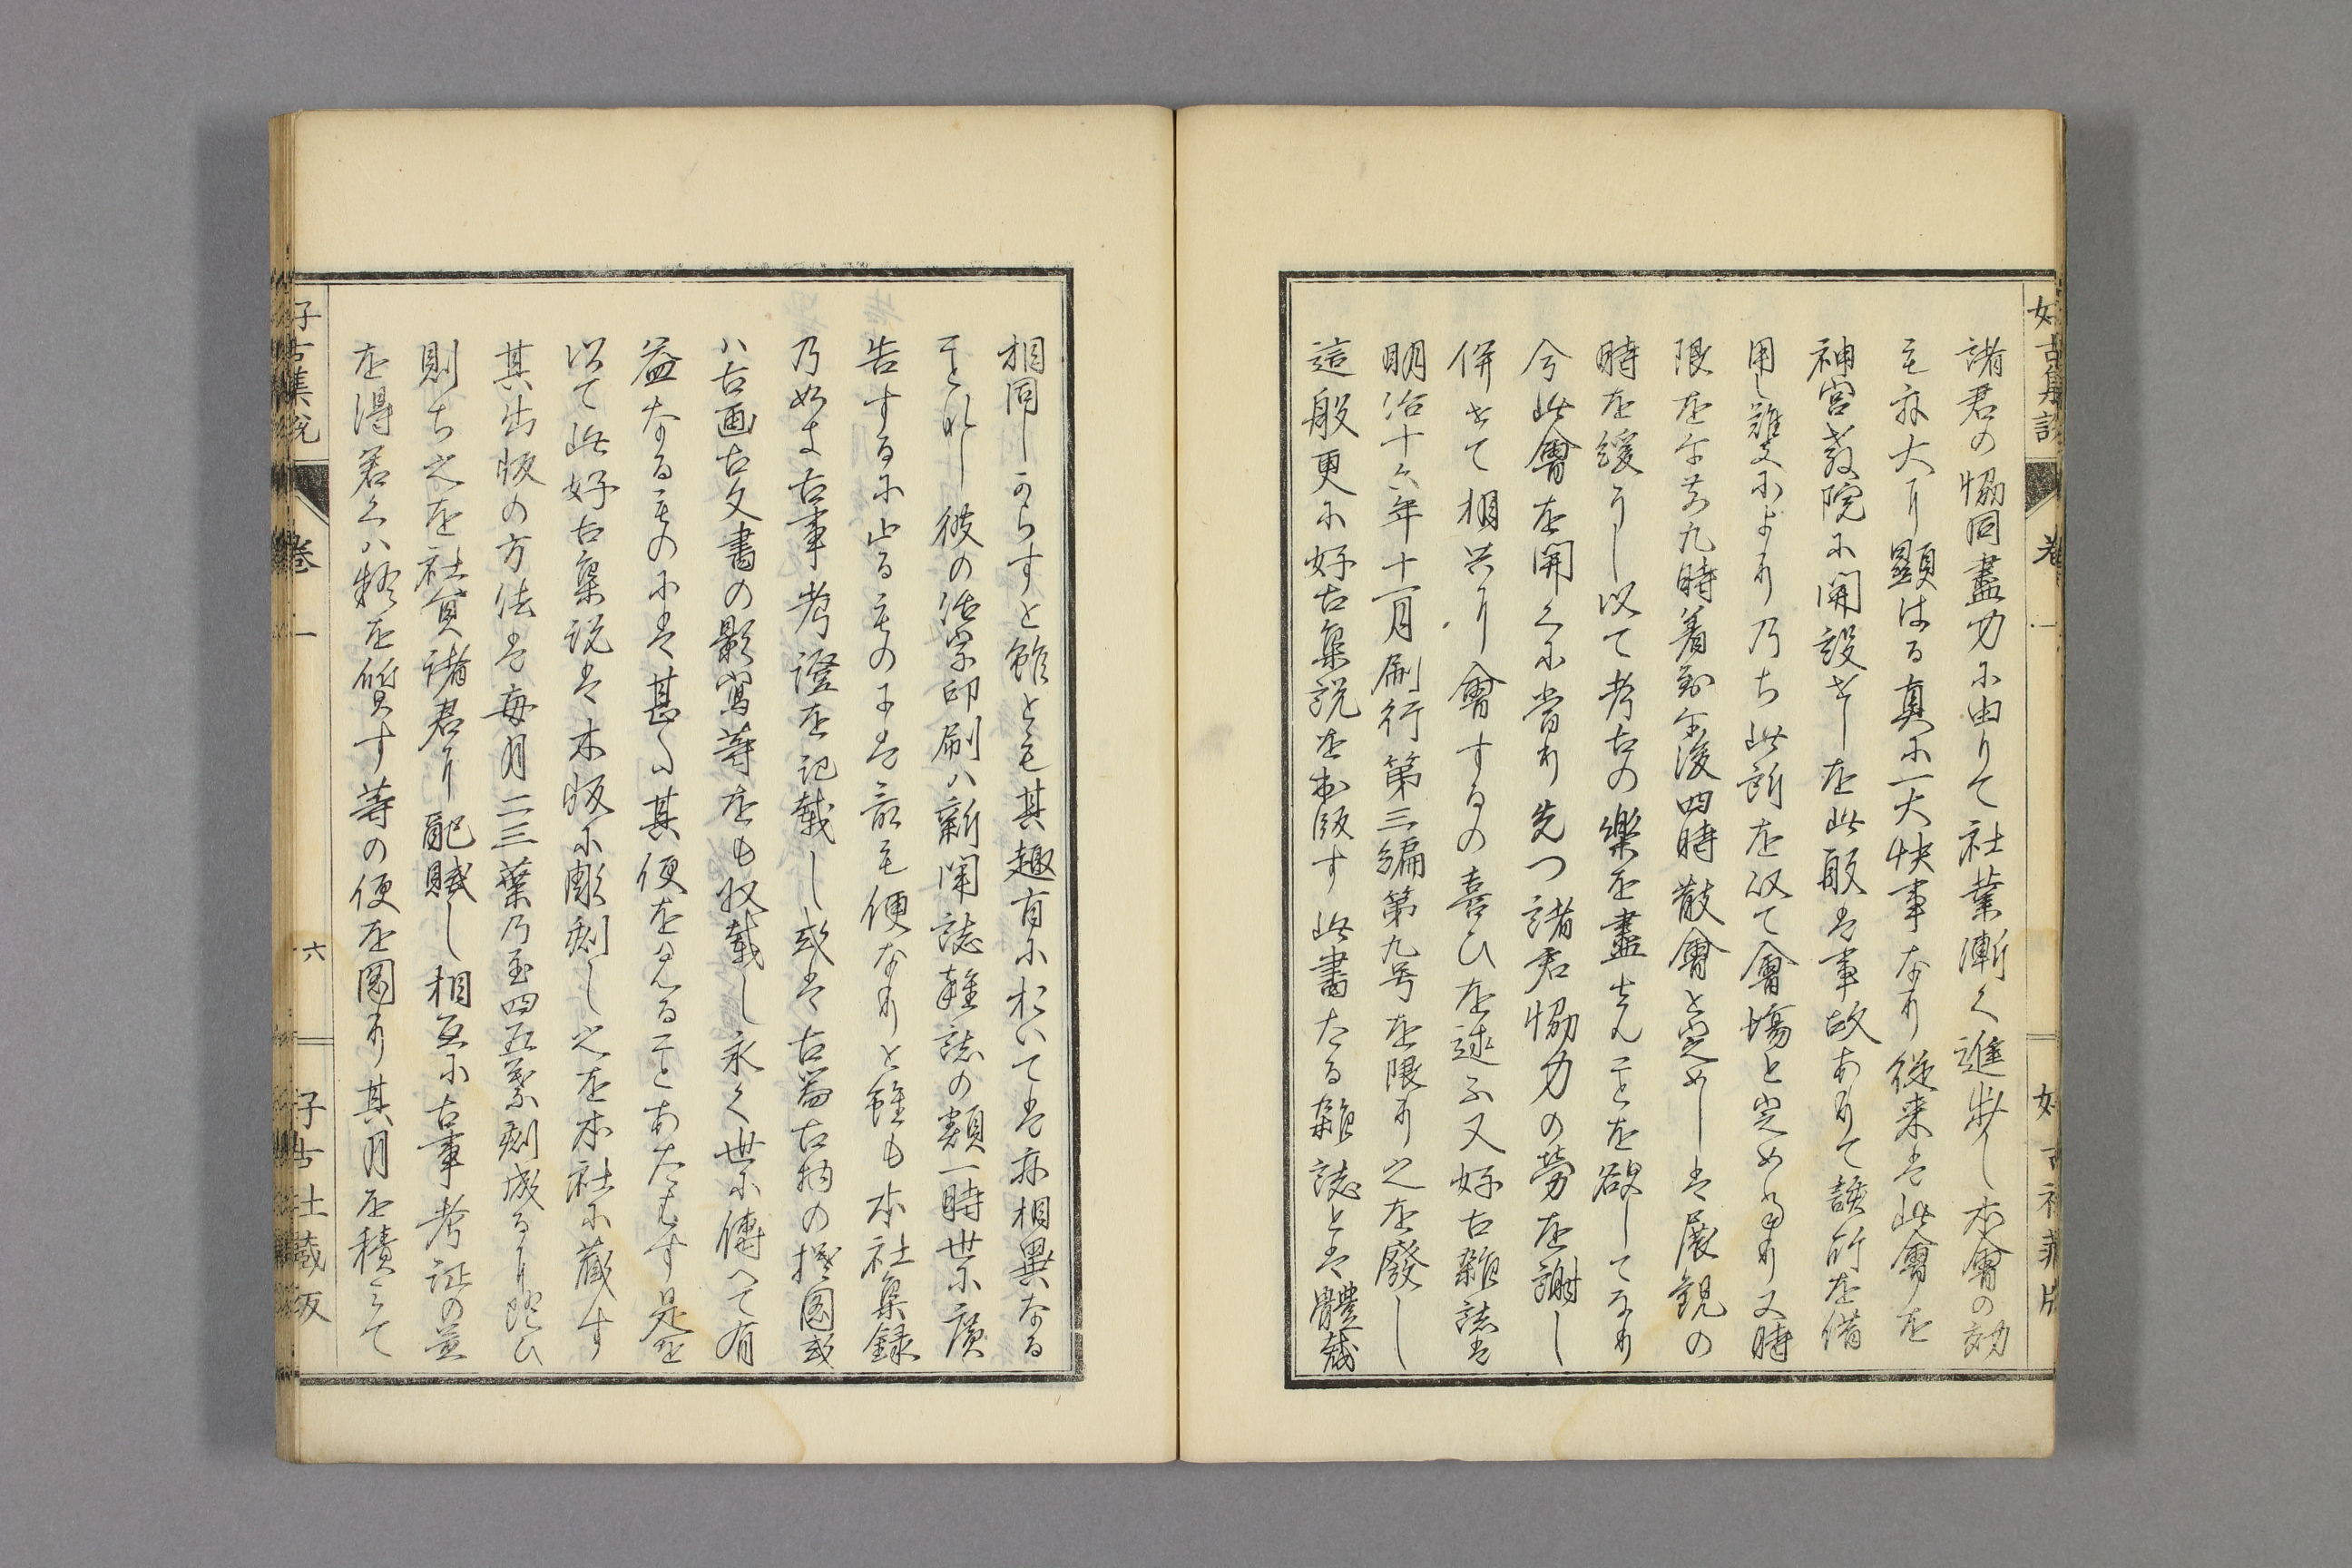 諸君の恊同盡力に由りて社業漸く進歩し本會の効
も亦大に顕はる真に一大快事なり従来は此會を
神宮教院に開設せしを此般は事故ありて該所を借
用し難きによりて乃ち此所を以て會場と定めたり又時
限を午前九時着到午後四時散會と定めしは展観の
時を緩うし以て考古の樂を盡さんことを欲してなり
今此會を開くに當り先つ諸君恊力の勞を謝し
併せて相共に會するの喜ひを述ふ又好古雜誌は
明治十六年十一月刷行第三編第九号を限り之を廢し
這般更に好古集説を出版す此書たる雜誌とは體裁
相同しからすと雖とも其趣旨に於いては亦相異なる
ことなし彼の活字印刷ハ新聞誌雜誌の類一時世に廣
告するに止るものには最も便なりと雖も本社集録
乃如き古事考證を記載し或は古器古物の摸圖或
ハ古画古文書の影寫等をも収載し永く世に傳へて有
益なるものには甚た其便を得ることあたはす是を
以て此好古集説は木版に彫刻し之を本社に藏す
其出版の方法は毎月二三葉乃至四五葉刻成るに随ひ
則ち之を社員諸君に配賦し相互に古事考証の益
を得若くハ疑を質す等の便を圖り其月を積みて
好古集説
卷一
六
好古社蔵版